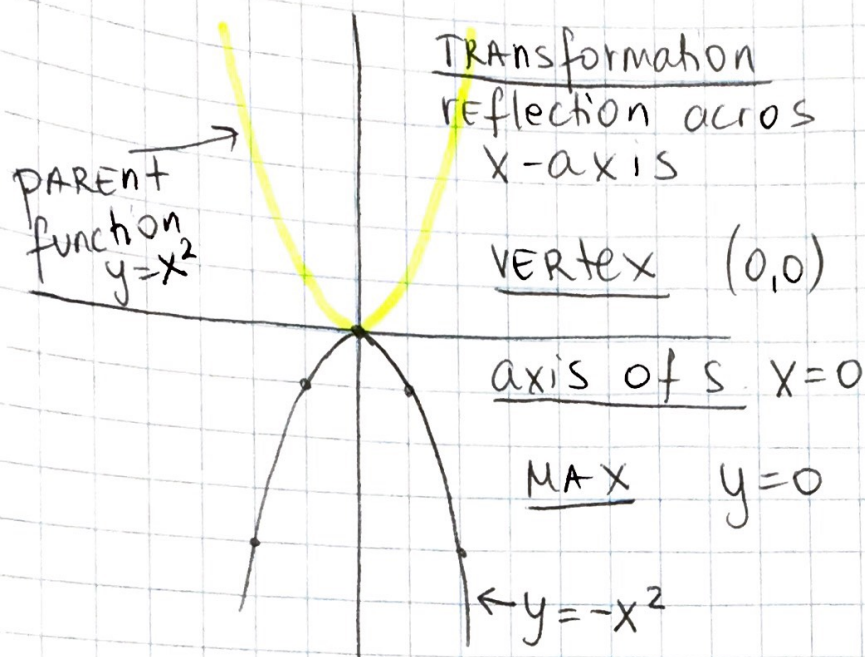 TRAnsformation
rEflection acros
x-axis
PAREnt
function
y=x²
VERtex (0,0)
axis of s. x=0
MAX y=0
←y=-x²